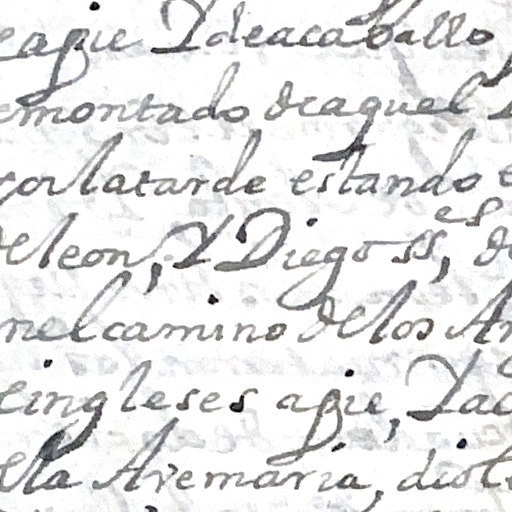 eapie Y deacaballo
emontado deaquel
porlatarde estando
deleon, Y Diego ss.es, de
nelcamino delos An
eingleses apie, Yac
ella Avemaria, diole